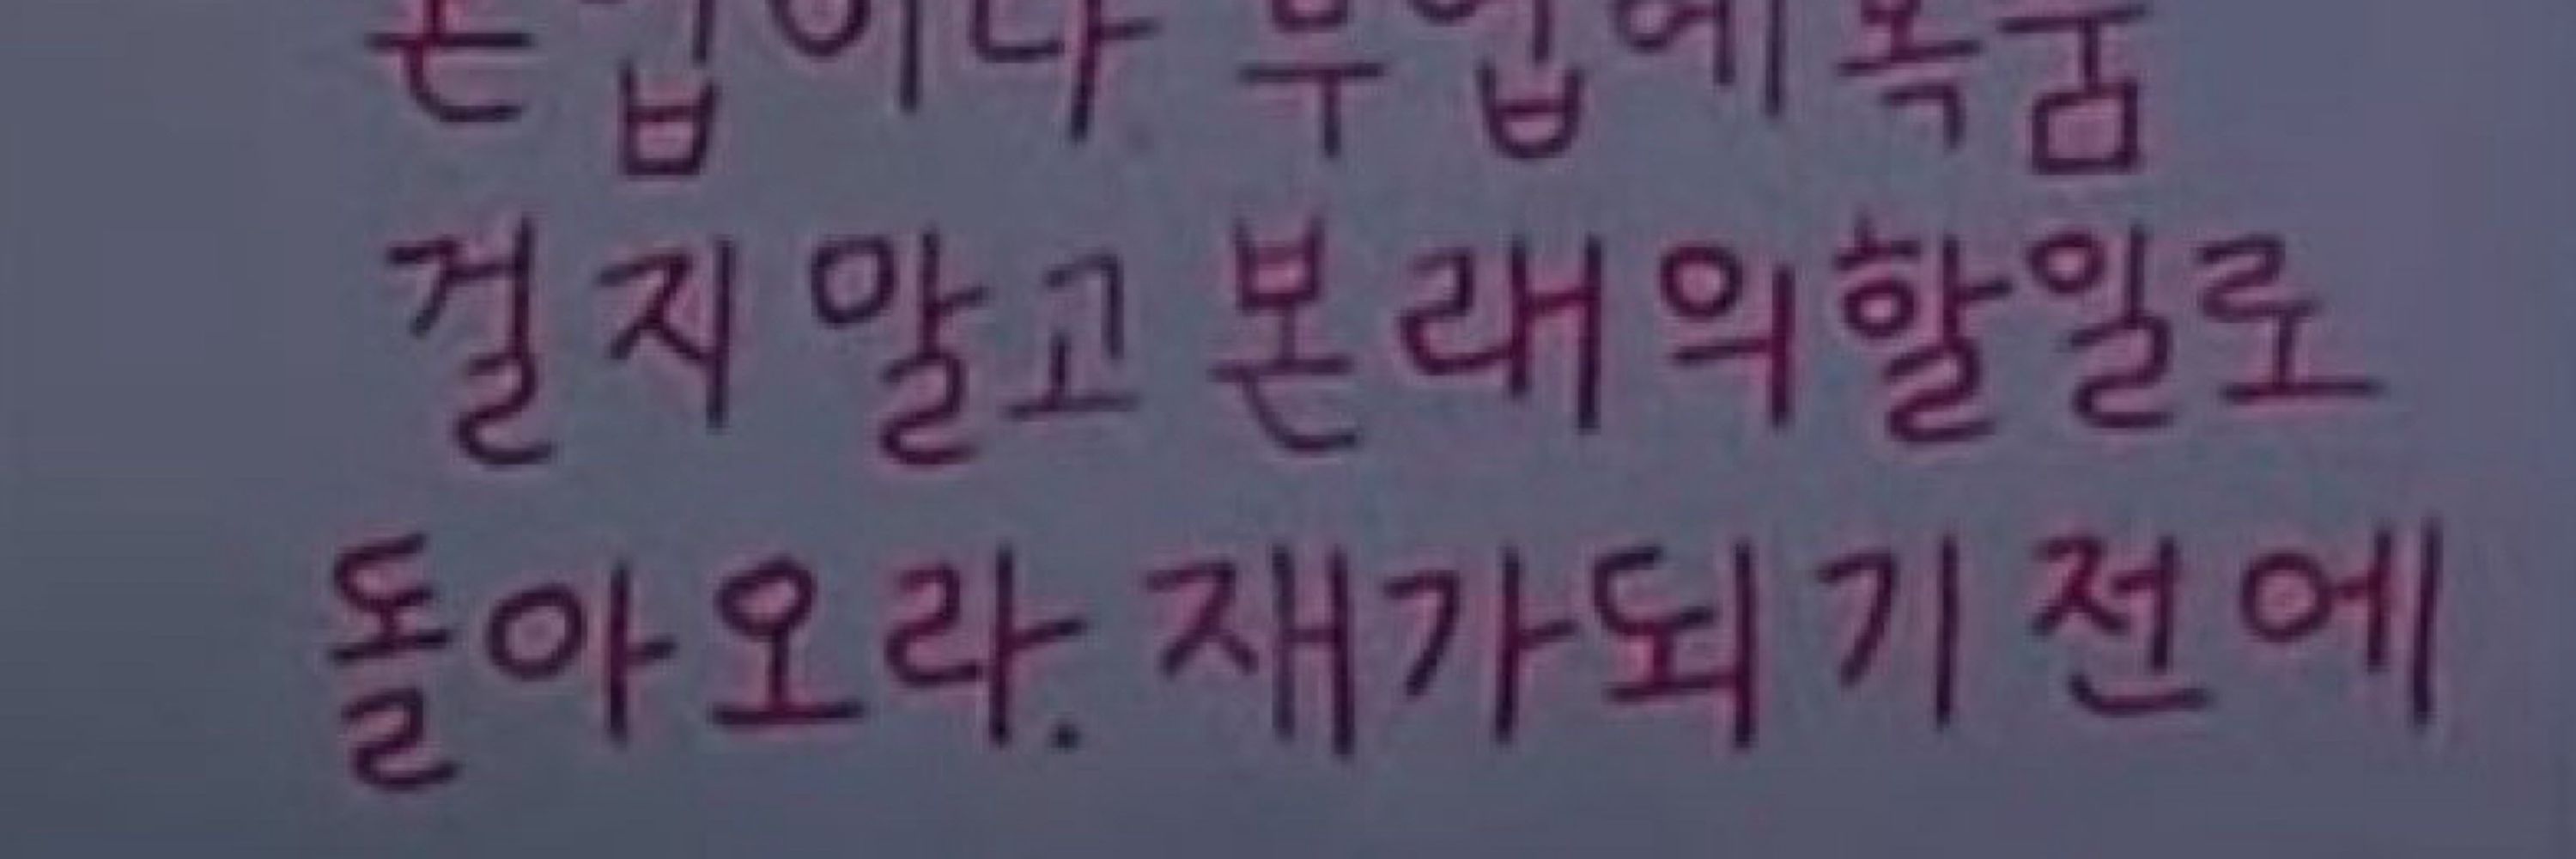 본업이다 부업에 목숨
걸지 말고 본래의 할일로
돌아오라. 재가되기 전에